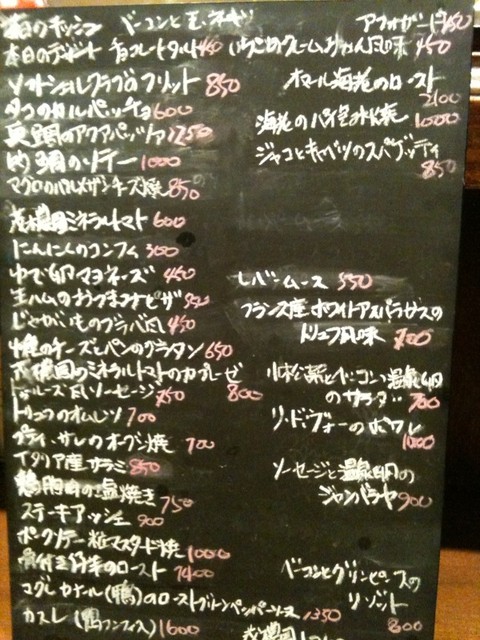 本日のキッシュ ベーコンと玉ネギ
アフォガード 450
本日のデザート チョコレートタルト 450 いちごのクレームみかん風味 450
ソフトシェルクラブのフリット 850
オマール海老のロースト
2100
タコのカルパッチョ 600
海老のパイ包み焼 1000
真鯛のアクアパッツァ 1250
ジャコとキャベツのスパゲッティ
850
的鯛のソテー 1000
マグロのパルメザンチーズ焼 850
ミネラルトマト 600
にんにくのコンフィ 300
ゆで卵マヨネーズ 450
レバームース 550
生ハムの ピザ
フランス産ホワイトアスパラガスの
トリュフ風味
じゃがいものブラバ風 450
チーズとパンのグラタン 650
のミネラルトマトのカプレーゼ
800
小松菜とベーコン温泉卵
のサラダ 700
トゥルーズ風ソーセージ 750
トリュフのオムレツ 700
リ・ド・ヴォーのポワレ
オーブン焼 700
イタリア産サラミ 850
ソーセージと温泉卵の
ジャンバラヤ 900
鶏胸肉の塩焼き 750
ステーキアッシェ 900
ポークソテー粒マスタード焼 1000
骨付き仔羊のロースト 1400
ベーコンとグリンピースの
リゾット
800
マグレカナール(鴨)のローストグリーンペッパーソース 1350
カスレ(鴨コンフィ入) 1600